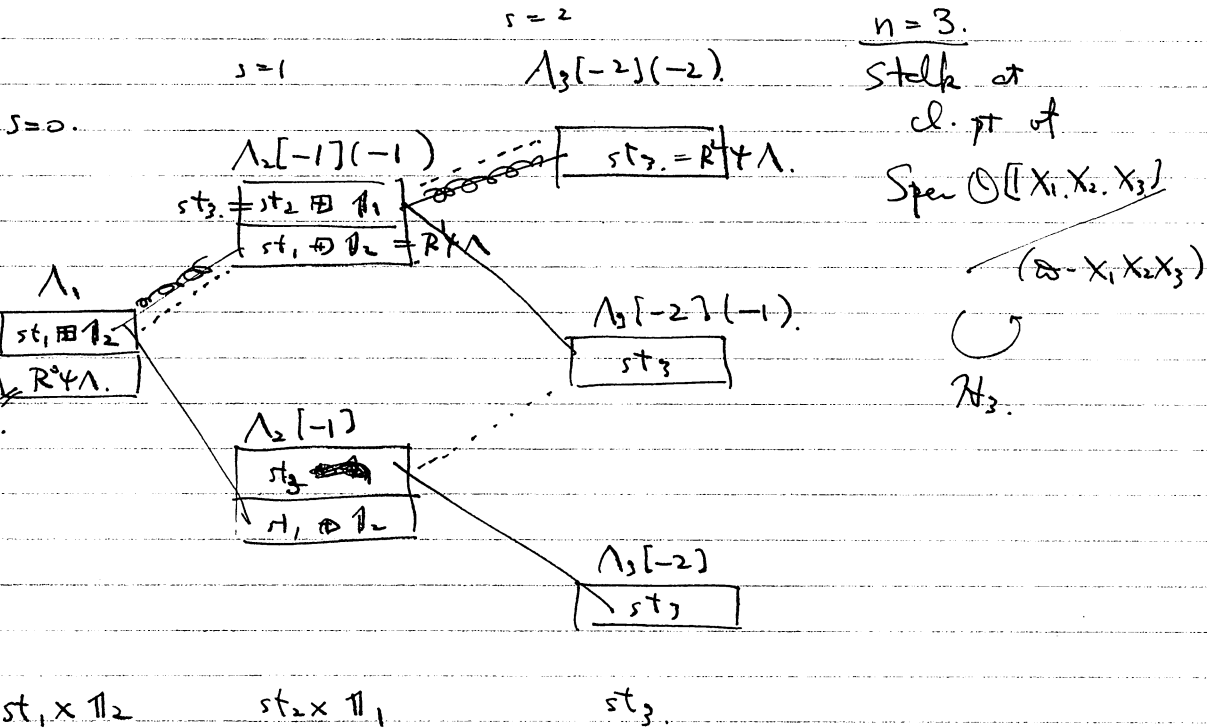 s = 2
n = 3.
s = 1
Λ₃[-2](-2).
Stalk at
s = 0.
cl. pt of
Λ₂[-1](-1)
st₃. = R²ψΛ.
Spec 𝒪[[X₁. X₂. X₃]
st₃. = st₂ ⊞ 𝟙₁
st₁ ⊞ 𝟙₂ = R¹ψΛ
(ϖ - X₁X₂X₃)
Λ₁
Λ₃[-2](-1).
st₁ ⊞ 𝟙₂
st₃
R⁰ψΛ.
ℋ₃.
Λ₂[-1]
st₃
st₁ ⊞ 𝟙₂
Λ₃[-2]
st₃
st₁ × 𝟙₂ st₂ × 𝟙₁ st₃.